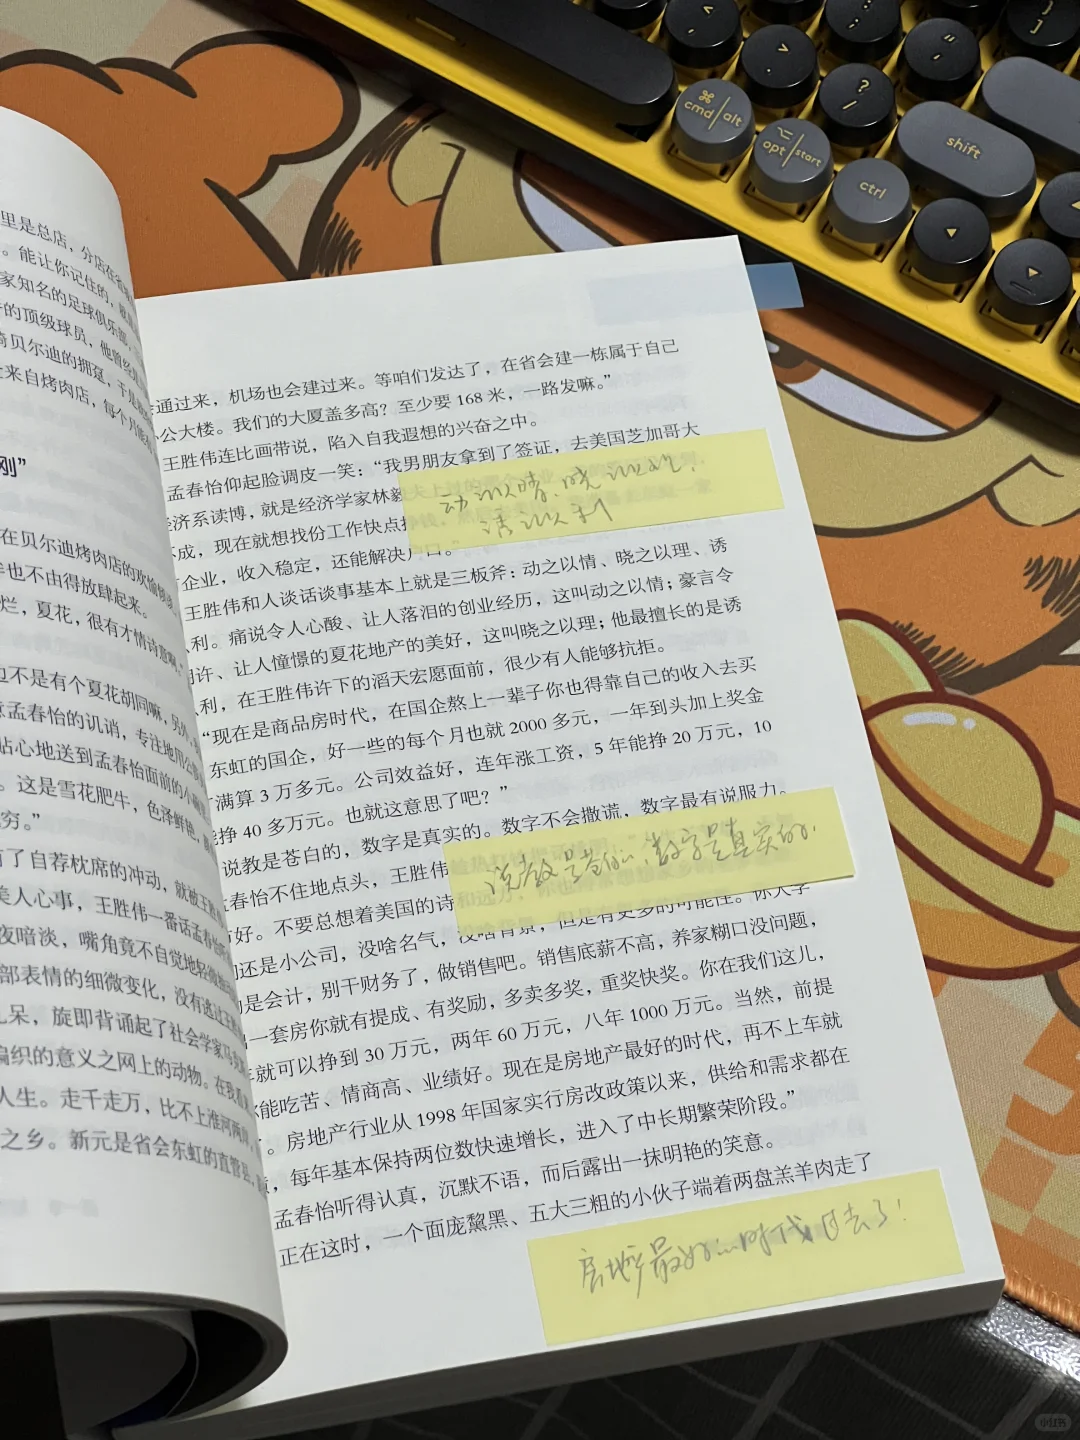 里是总店，分店在
。能让你记住的，
家知名的足球俱乐部，
的顶级球员，他曾经
贝尔迪的拥趸，于是
来自烤肉店，每个
刚”
在贝尔迪烤肉店的
也不由得放肆起来。
烂，夏花，很有才情诗意啊
不是有个夏花胡同嘛，另外
孟春怡的讥诮，专注地用
贴心地送到孟春怡面前的小
。这是雪花肥牛，色泽鲜艳，
穷。”
了自荐枕席的冲动，就被王胜
美人心事，王胜伟一番话孟春怡
夜暗淡，嘴角竟不自觉地轻
部表情的细微变化，没有逃过王胜
呆，旋即背诵起了社会学家马克斯
编织的意义之网上的动物。在我
人生。走千走万，比不上淮河两
之乡。新元是省会东虹的直管县，
通过来，机场也会建过来。等咱们发达了，在省会建一栋属于自己
公大楼。我们的大厦盖多高？至少要 168 米，一路发嘛。”
王胜伟连比画带说，陷入自我遐想的兴奋之中。
孟春怡仰起脸调皮一笑：“我男朋友拿到了签证，去美国芝加哥大
经济系读博，就是经济学家林毅
不成，现在就想找份工作快点
企业，收入稳定，还能解决户口。”
王胜伟和人谈话谈事基本上就是三板斧：动之以情、晓之以理、诱
利。痛说令人心酸、让人落泪的创业经历，这叫动之以情；豪言令
许、让人憧憬的夏花地产的美好，这叫晓之以理；他最擅长的是诱
利，在王胜伟许下的滔天宏愿面前，很少有人能够抗拒。
“现在是商品房时代，在国企熬上一辈子你也得靠自己的收入去买
东虹的国企，好一些的每个月也就 2000 多元，一年到头加上奖金
满算 3 万多元。公司效益好，连年涨工资，5 年能挣 20 万元，10
能挣 40 多万元。也就这意思了吧？”
说教是苍白的，数字是真实的。数字不会撒谎，数字最有说服力。
孟春怡不住地点头，王胜伟
好。不要总想着美国的诗
还是小公司，没啥名气，没啥背景，但是有更多的可能性。你大学
是会计，别干财务了，做销售吧。销售底薪不高，养家糊口没问题，
一套房你就有提成、有奖励，多卖多奖，重奖快奖。你在我们这儿，
就可以挣到 30 万元，两年 60 万元，八年 1000 万元。当然，前提
你能吃苦、情商高、业绩好。现在是房地产最好的时代，再不上车就
。房地产行业从 1998 年国家实行房改政策以来，供给和需求都在
，每年基本保持两位数快速增长，进入了中长期繁荣阶段。”
孟春怡听得认真，沉默不语，而后露出一抹明艳的笑意。
正在这时，一个面庞黧黑、五大三粗的小伙子端着两盘羔羊肉走了
动以情、晓以理！
诱以利
说教是苍白的，数字是真实的.
房地产最好的时代过去了！
<
,
>
.
:
;
"
'
?
/
]
⌘
cmd alt
⌥
opt start
ctrl
shift
小红书